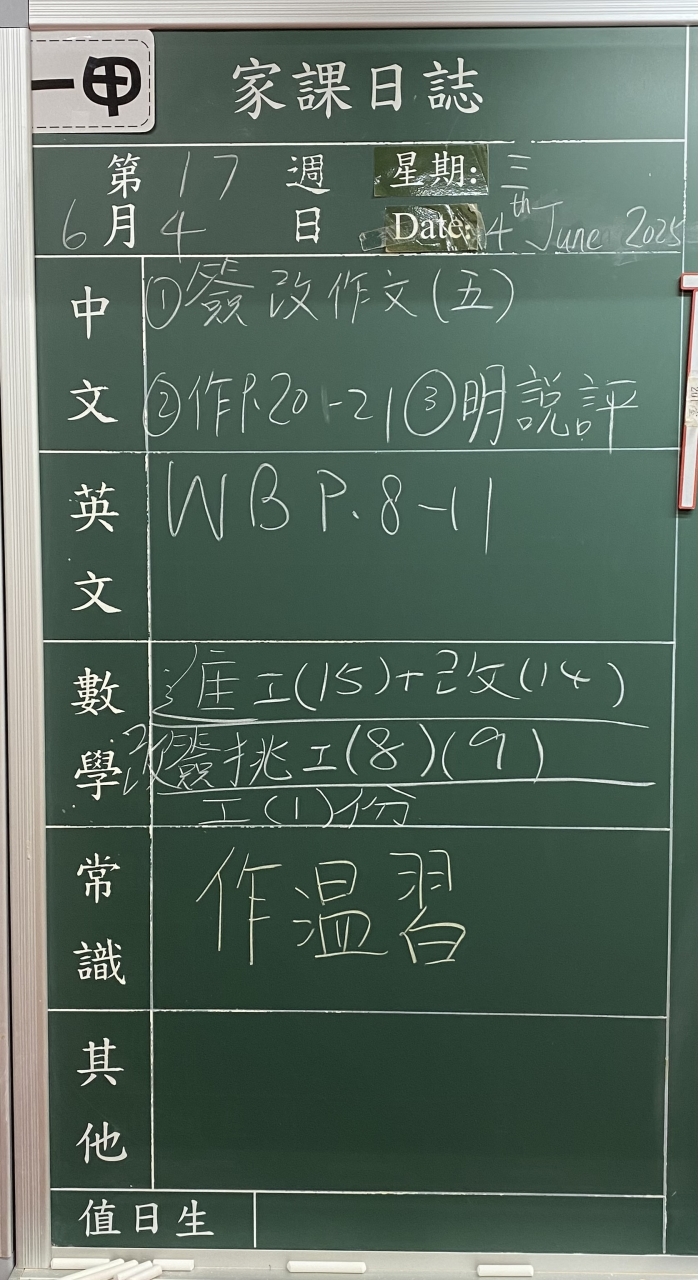 一甲
家課日誌
第 17 週 星期: 三
6月 4 日 Date: 4th June 2025
中文 ①簽改作文(五)
②作P.20-21 ③明說評
英文 WB P.8-11
數學 進工(15)+改(14)
改簽挑工(8)(9)
工(1)份
常識 作温習
其他
值日生